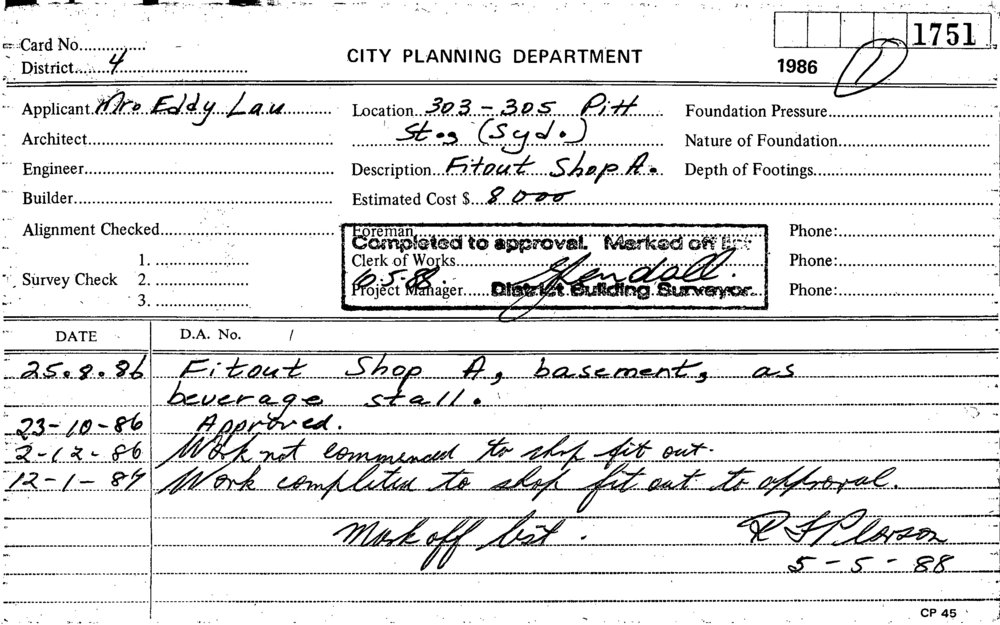 1751
Card No.
CITY PLANNING DEPARTMENT
District 4
1986 1
Applicant Mr. Eddy Lau
Location 303-305 Pitt
Foundation Pressure
Architect
St., (Syd.)
Nature of Foundation
Engineer
Description Fitout Shop A.
Depth of Footings
Builder
Estimated Cost $ 8000
Alignment Checked
Foreman
Phone:
Completed to approval. Marked off list
1.
Clerk of Works
Phone:
Survey Check 2.
10.5.88
Project Manager
District Building Surveyor.
Phone:
3.
DATE D.A. No. /
25.8.86 Fitout Shop A, basement, as
beverage stall.
23-10-86 Approved.
2-12-86 Work not commenced to shop fit out.
12-1-87 Work completed to shop fit out to approval.
Mark off list. R F Pearson
5-5-88
CP 45